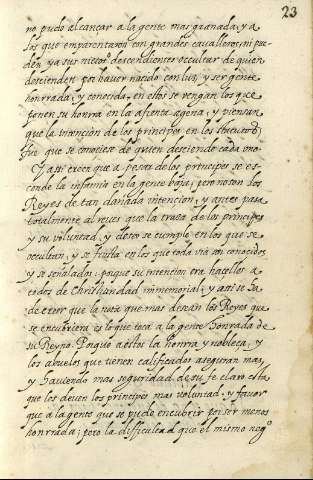 23
no pudo alcançar a la gente mas granada, y a
los que emparentaron con grandes cavalleros, ni pue
den ya sus nietos descendientes occultar de quien
descienden por haver nacido con luz, y ser gente
honrrada, y conocida, en estos se vengan los que
ponen su honrra en la afrenta agena, y piensan
que la intencion de los principes en los statutos,
fue que se conociese de quien desciende cada uno
Y assi creen que a pesar de los principes se es-
conde la infamia en la gente baja; pero no son los
Reyes de tan dañada intencion, y antes pasa
totalmente al reves que la traza de los principes
y su voluntad, y deseo se cumple en los que se
occultan, y se frustra en los que toda via son conocidos
y señalados: porque su intencion era hacellos a
todos de Christiandad immemorial; y ansi se da
de creer que la parte que mas desean los Reyes que
se encubriera es lo que toca a la gente honrada de
su Reyno. Porque a estos la honrra y nobleça, y
los abuelos que tienen calificados aseguran mas,
y haviendo mas seguridad de su fe claro esta
que los deven los principes mas voluntad, y favor
que a la gente que se pudo encubrir por ser menos
honrrada; pero la dificultad que el mismo nego